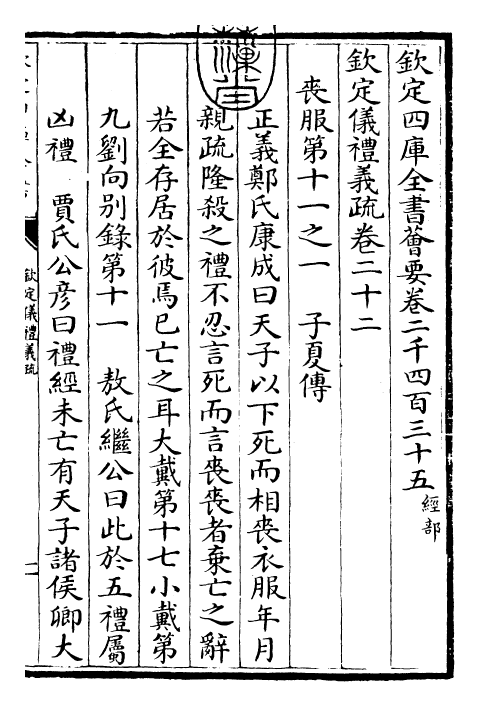 欽定四庫全書薈要卷二千四百三十五 經部
欽定儀禮義疏卷二十二
喪服第十一之一 子夏傳
正義鄭氏康成曰天子以下死而相喪衣服年月
親疏隆殺之禮不忍言死而言喪喪者棄亡之辭
若全存居於彼焉已亡之耳大戴第十七小戴第
九劉向别錄第十一 敖氏繼公曰此於五禮屬
凶禮 賈氏公彦曰禮經未亡有天子諸侯卿大
欽定儀禮義疏
一